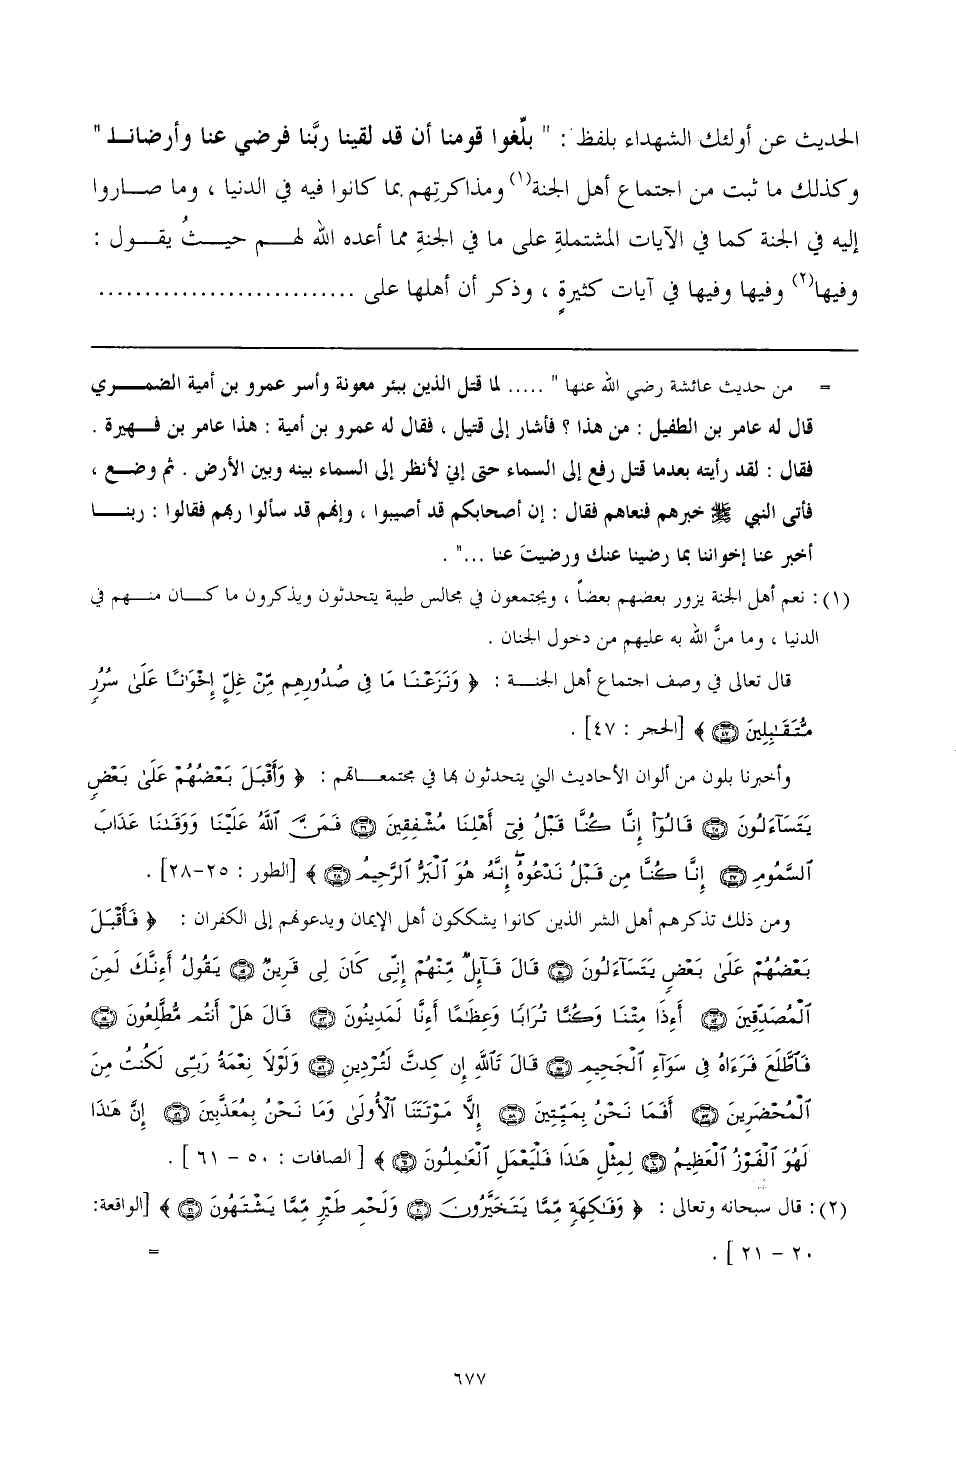 الحديث عن أولئك الشهداء بلفظ : " بلِّغوا قومنا أن قد لقينا ربَّنا فرضي عنا وأرضانــا "
وكذلك ما ثبت من اجتماع أهل الجنة(١) ومذاكرتِهم بما كانوا فيه في الدنيا ، وما صـاروا
إليه في الجنة كما في الآيات المشتملةِ على ما في الجنةِ مما أعده الله لهـم حيـثُ يقـول :
وفيها(٢) وفيها وفيها في آيات كثيرةٍ ، وذكر أن أهلها على ............................
= من حديث عائشة رضي الله عنها " ..... لما قتل الذين ببئر معونة وأسر عمرو بن أمية الضمـري
قال له عامر بن الطفيل : من هذا ؟ فأشار إلى قتيل ، فقال له عمرو بن أمية : هذا عامر بن فـهيرة .
فقال : لقد رأيته بعدما قتل رفع إلى السماء حتى إني لأنظر إلى السماء بينه وبين الأرض . ثم وضـع ،
فأتى النبي ﷺ خبرهم فنعاهم فقال : إن أصحابكم قد أصيبوا ، وإنهم قد سألوا ربهم فقالوا : ربنــا
أخبر عنا إخواننا بما رضينا عنك ورضيتَ عنا ..." .
(١) : نعم أهل الجنة يزور بعضهم بعضاً ، ويجتمعون في مجالس طيبة يتحدثون ويذكرون ما كـان منـهم في
الدنيا ، وما منَّ الله به عليهم من دخول الجنان .
قال تعالى في وصف اجتماع أهل الجنـة : ﴿ وَنَزَعْنَا مَا فِي صُدُورِهِم مِّنْ غِلٍّ إِخْوَٰنًا عَلَىٰ سُرُرٍ
مُّتَقَـٰبِلِينَ ﴿٤٧﴾ ﴾ [الحجر : ٤٧] .
وأخبرنا بلون من ألوان الأحاديث التي يتحدثون بها في مجتمعـاتهم : ﴿ وَأَقْبَلَ بَعْضُهُمْ عَلَىٰ بَعْضٍ
يَتَسَآءَلُونَ ﴿٢٥﴾ قَالُوٓا۟ إِنَّا كُنَّا قَبْلُ فِىٓ أَهْلِنَا مُشْفِقِينَ ﴿٢٦﴾ فَمَنَّ ٱللَّهُ عَلَيْنَا وَوَقَىٰنَا عَذَابَ
ٱلسَّمُومِ ﴿٢٧﴾ إِنَّا كُنَّا مِن قَبْلُ نَدْعُوهُ ۖ إِنَّهُۥ هُوَ ٱلْبَرُّ ٱلرَّحِيمُ ﴿٢٨﴾ ﴾ [الطور : ٢٥-٢٨] .
ومن ذلك تذكرهم أهل الشر الذين كانوا يشككون أهل الإيمان ويدعونهم إلى الكفران : ﴿ فَأَقْبَلَ
بَعْضُهُمْ عَلَىٰ بَعْضٍ يَتَسَآءَلُونَ ﴿٥٠﴾ قَالَ قَآئِلٌ مِّنْهُمْ إِنِّى كَانَ لِى قَرِينٌ ﴿٥١﴾ يَقُولُ أَءِنَّكَ لَمِنَ
ٱلْمُصَدِّقِينَ ﴿٥٢﴾ أَءِذَا مِتْنَا وَكُنَّا تُرَابًا وَعِظَـٰمًا أَءِنَّا لَمَدِينُونَ ﴿٥٣﴾ قَالَ هَلْ أَنتُم مُّطَّلِعُونَ ﴿٥٤﴾
فَٱطَّلَعَ فَرَءَاهُ فِى سَوَآءِ ٱلْجَحِيمِ ﴿٥٥﴾ قَالَ تَٱللَّهِ إِن كِدتَّ لَتُرْدِينِ ﴿٥٦﴾ وَلَوْلَا نِعْمَةُ رَبِّى لَكُنتُ مِنَ
ٱلْمُحْضَرِينَ ﴿٥٧﴾ أَفَمَا نَحْنُ بِمَيِّتِينَ ﴿٥٨﴾ إِلَّا مَوْتَتَنَا ٱلْأُولَىٰ وَمَا نَحْنُ بِمُعَذَّبِينَ ﴿٥٩﴾ إِنَّ هَـٰذَا
لَهُوَ ٱلْفَوْزُ ٱلْعَظِيمُ ﴿٦٠﴾ لِمِثْلِ هَـٰذَا فَلْيَعْمَلِ ٱلْعَـٰمِلُونَ ﴿٦١﴾ ﴾ [ الصافات : ٥٠ - ٦١ ] .
(٢) : قال سبحانه وتعالى : ﴿ وَفَـٰكِهَةٍ مِّمَّا يَتَخَيَّرُونَ ﴿٢٠﴾ وَلَحْمِ طَيْرٍ مِّمَّا يَشْتَهُونَ ﴿٢١﴾ ﴾ [الواقعة:
٢٠ - ٢١ ] . =
٦٧٧